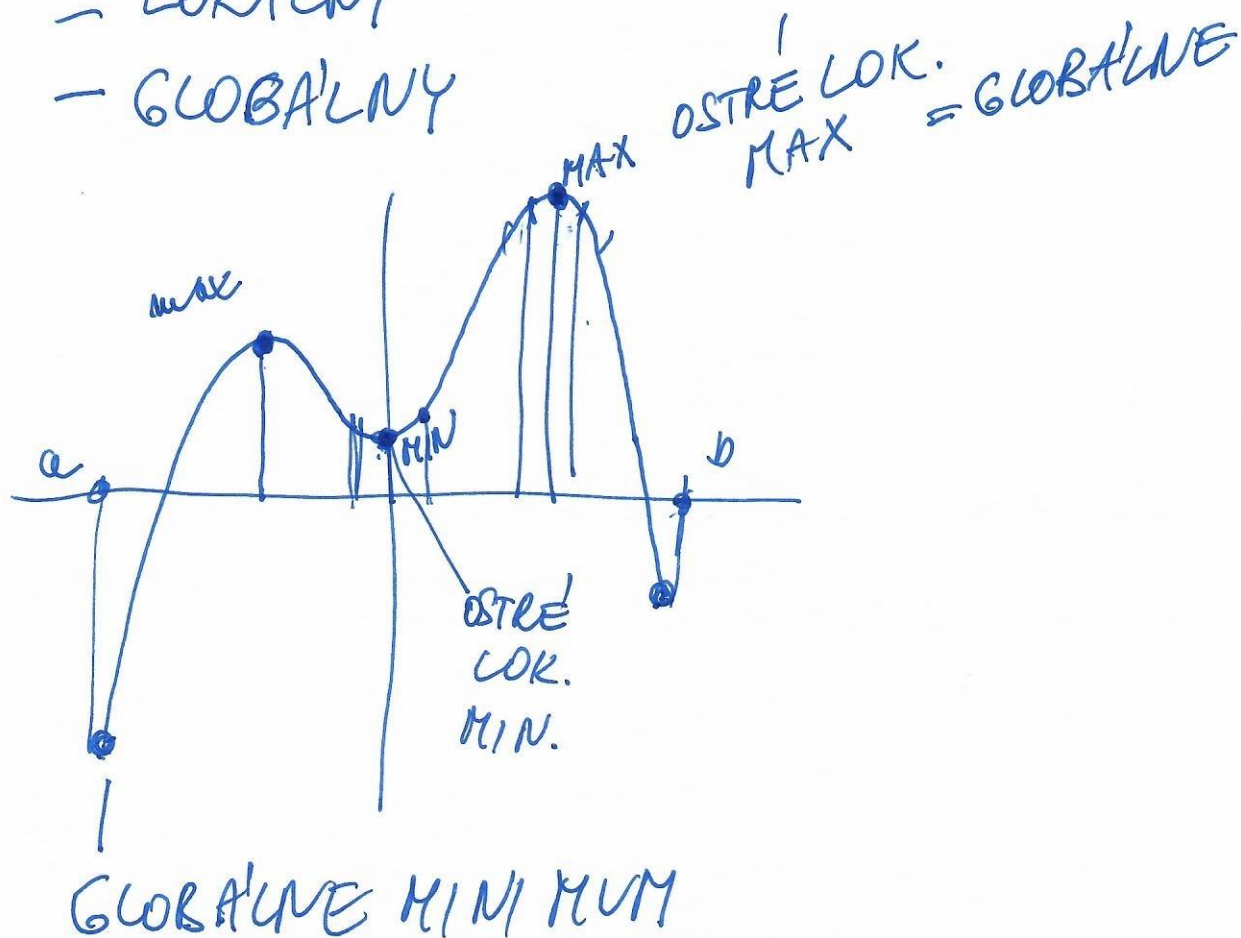 – LOKÁLNY
– GLOBÁLNY
OSTRÉ LOK.
MAX = GLOBÁLNE
MAX
max
MIN
a
b
OSTRÉ
LOK.
MIN.
GLOBÁLNE MINIMUM